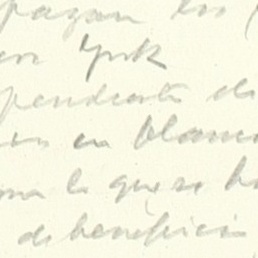 pagan los
York
pendiente de
en blanco
lo que se
de beneficio